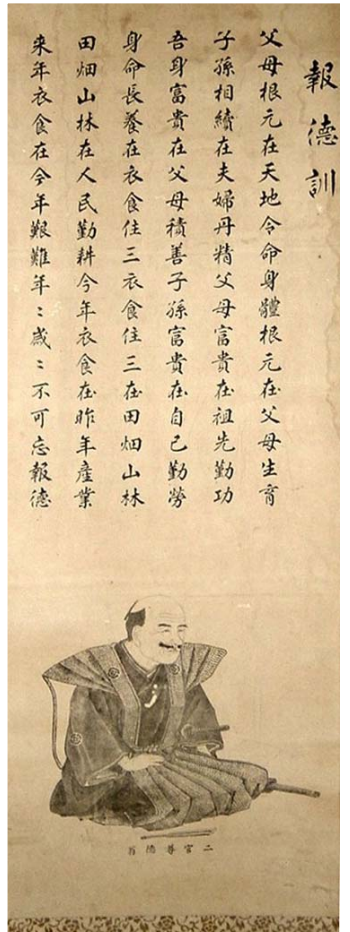 報德訓
父母根元在天地令命身體根元在父母生育
子孫相續在夫婦丹精父母富貴在祖先勤功
吾身富貴在父母積善子孫富貴在自己勤勞
身命長養在衣食住三衣食住三在田畑山林
田畑山林在人民勤耕今年衣食在昨年產業
来年衣食在今年艱難年〻歲〻不可忘報德
二宮尊德翁